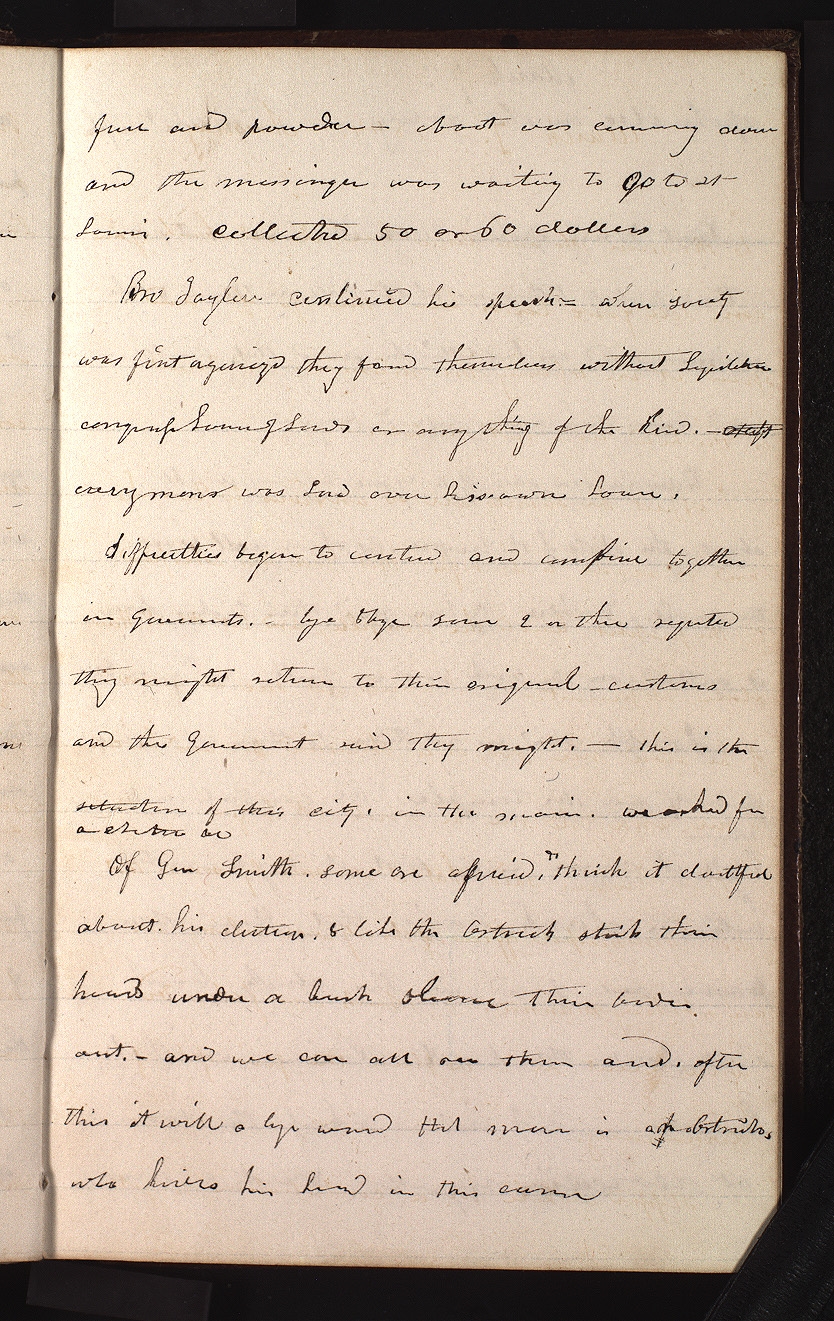 fuse and powder - aboat was comming down
and the messinger was waiting to go to St
Louis. collected 50 or 60 dollers
Bro Taylor continued his speech = when society
was first orgnizd they found themselves without Legislature
congress house of Lords or any thing of the kind. -
every mans was Lord over his own house.
difficulties began to and combine together
in Governments. - bye & bye some 2 or three requted
they might return to their original customs
and the Government said they might. - this is the
situation of this city. in the main. we asked for
a charter &c
Of Gen Smith. some are afraid, think it doubtful
about his election, & like the Ostrich stick their
heads under a bush & leave their bodies
out. - and we can all see them and. after
this it will a bye word that man is an Ostrich
who hides his head in this cause